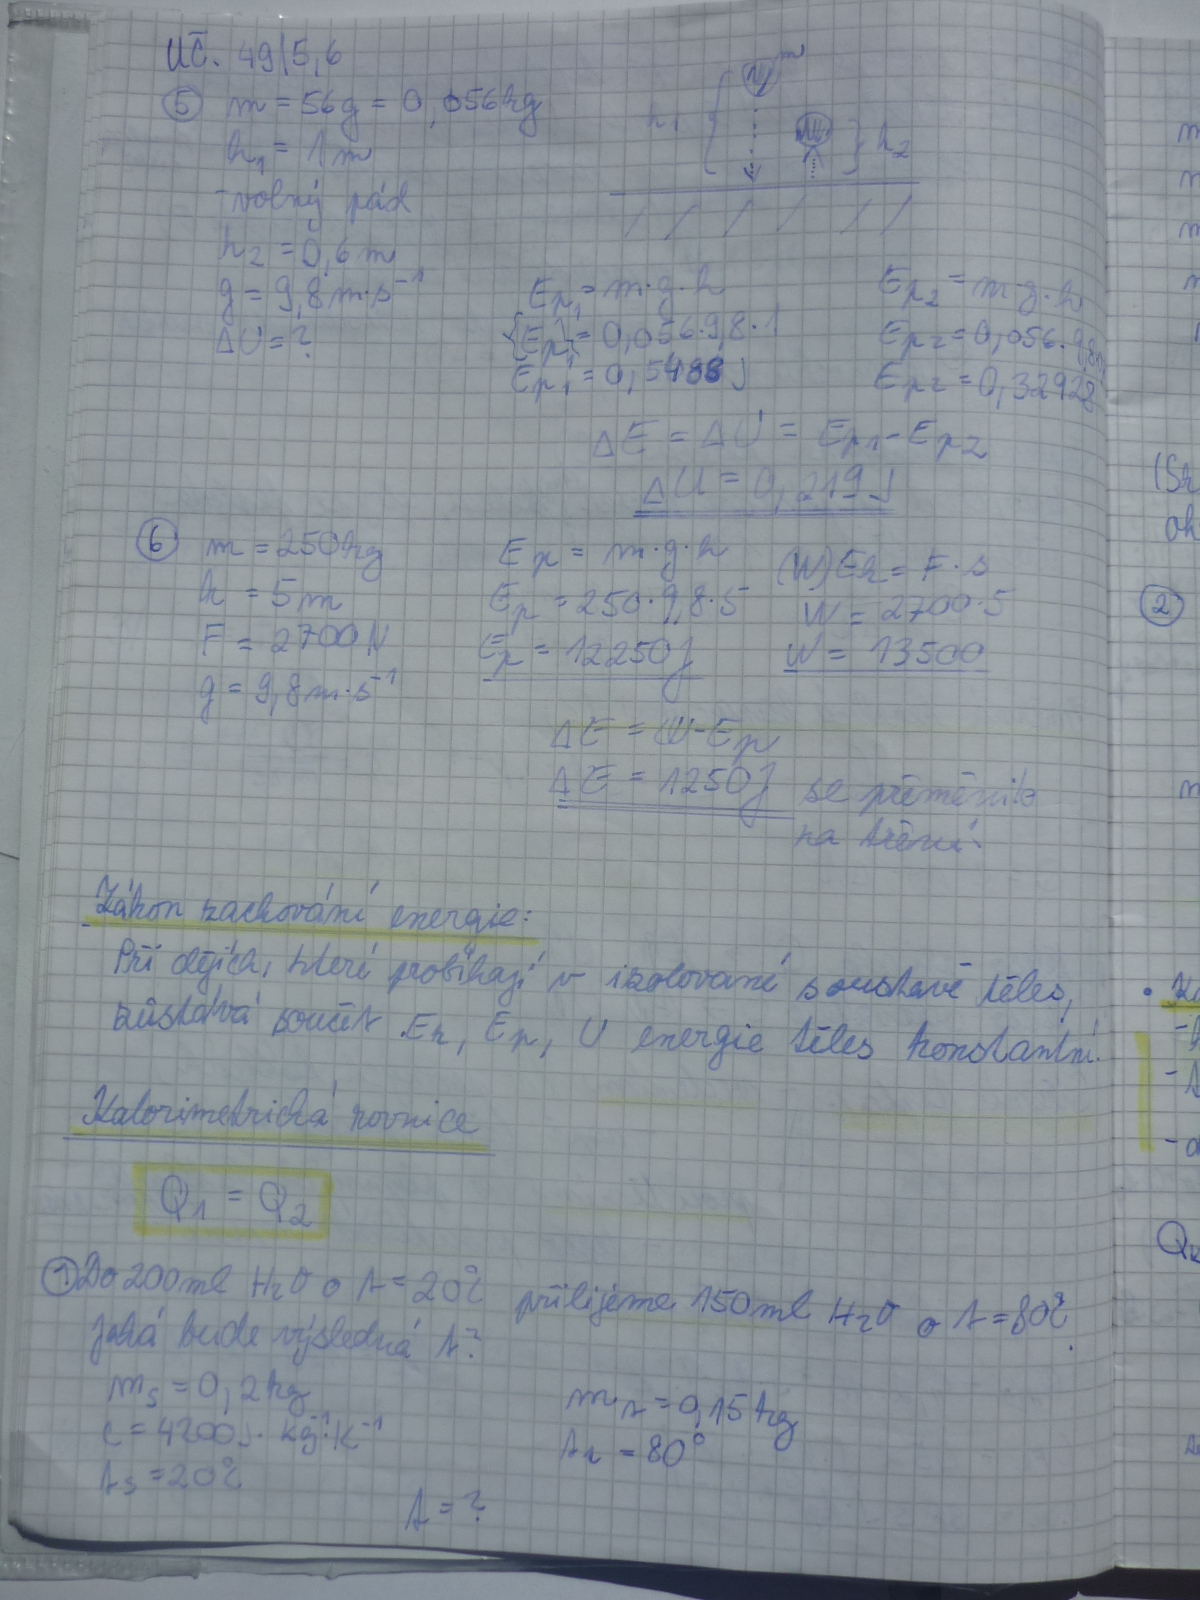 UČ. 49/5,6
⑤ m = 56g = 0,056kg
h₁ = 1m
-volný pád
h₂ = 0,6 m
g = 9,8 m·s⁻¹
ΔU = ?
m
h₁
h₂
Ep₁ = m·g·h
{Ep₁} = 0,056·9,8·1
Ep₁ = 0,5488 J
Ep₂ = m·g·h
Ep₂ = 0,056·9,8·0,
Ep₂ = 0,32928
ΔE = ΔU = Ep₁-Ep₂
ΔU = 0,219 J
⑥ m = 250kg
h = 5m
F = 2700 N
g = 9,8 m·s⁻¹
Ep = m·g·h
Ep = 250·9,8·5
Ep = 12250J
(W)Ek = F·s
W = 2700·5
W = 13500
ΔE = W-Ep
ΔE = 1250J se přeměnilo
na tření.
Zákon zachování energie:
Při dějích, které probíhají v izolované soustavě těles,
zůstává součet Ek, Ep, U energie těles konstantní.
Kalorimetrická rovnice
Q₁ = Q₂
① Do 200ml H₂O o t = 20°C přilijeme 150ml H₂O o t = 80°C.
Jaká bude výsledná t?
mₛ = 0,2kg
c = 4200J·kg⁻¹·K⁻¹
tₛ = 20°C
mₜ = 0,15kg
tₜ = 80°
t = ?
②